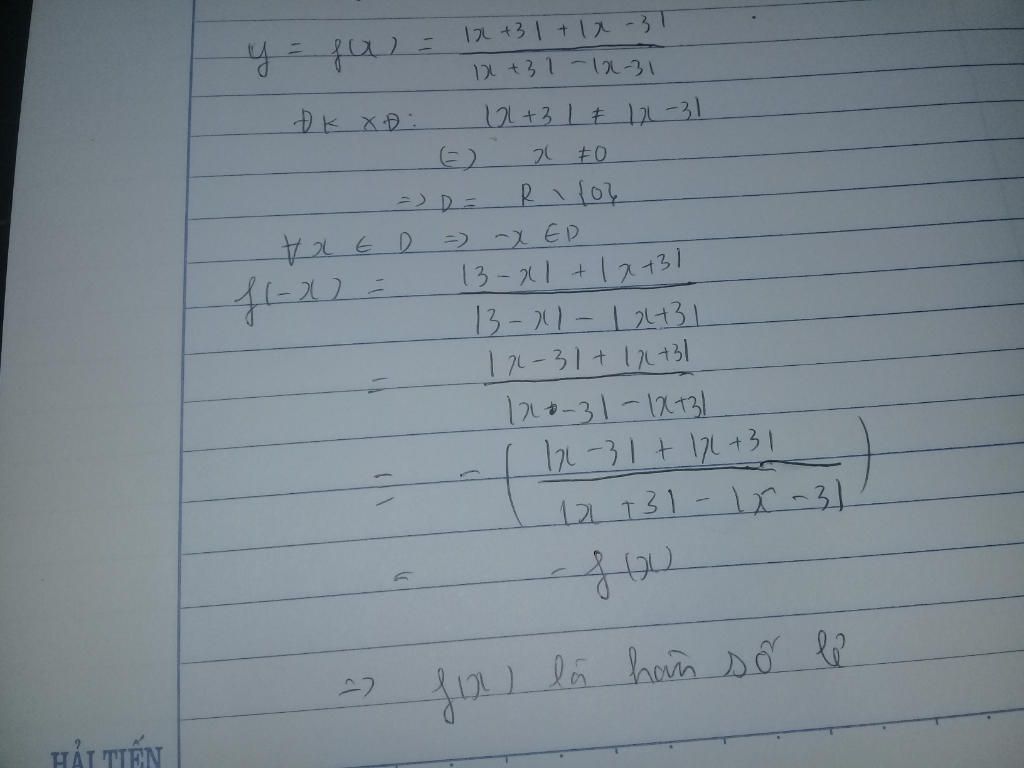 y = f(x) = |x+3| + |x-3| / |x+3| - |x-3|
ĐKXĐ: |x+3| ≠ |x-3|
(=) x ≠ 0
=> D = R \ {0}
∀x ∈ D => -x ∈ D
f(-x) = |3-x| + |x+3| / |3-x| - |x+3|
= |x-3| + |x+3| / |x-3| - |x+3|
= - ( |x-3| + |x+3| / |x+3| - |x-3| )
= - f(x)
=> f(x) là hàm số lẻ
HẢI TIẾN